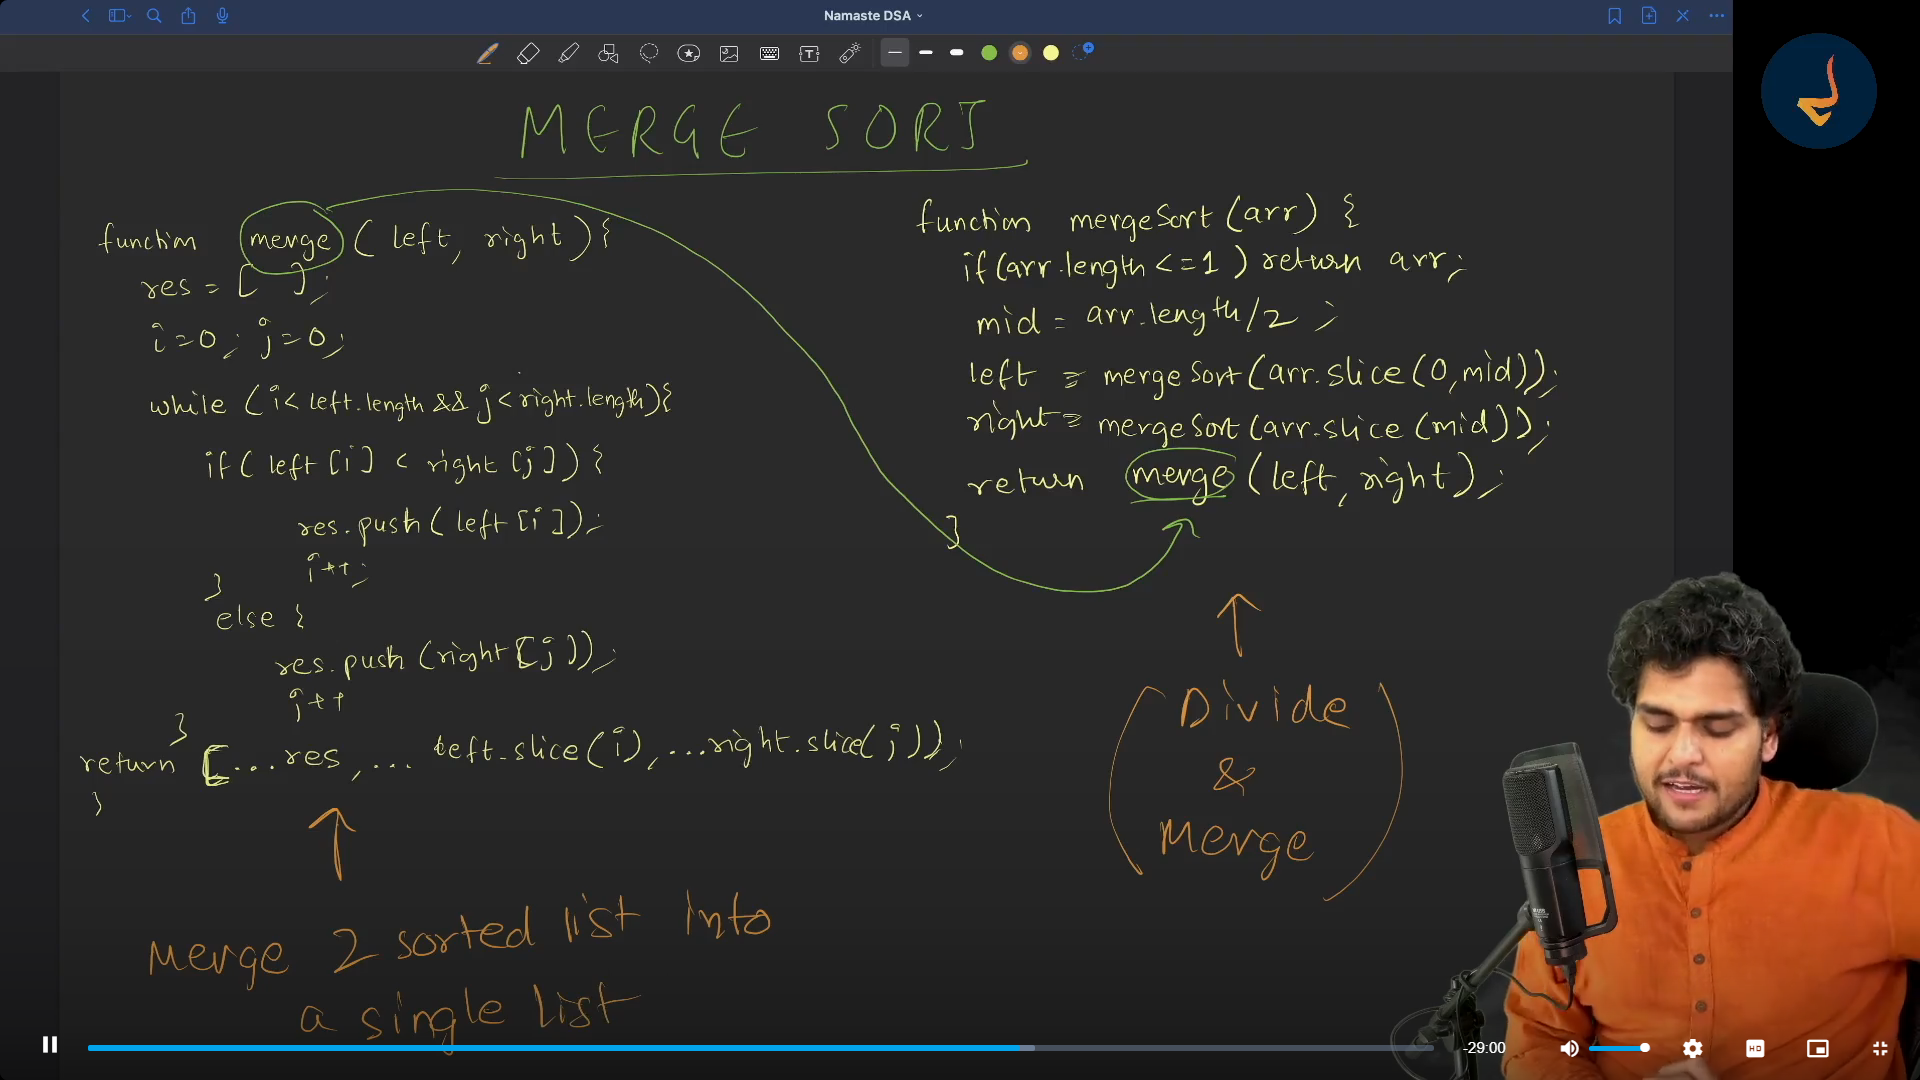 Namaste DSA
MERGE SORT
function merge ( left, right ) {
res = [ ] ;
i=0 ; j=0 ;
while ( i < left.length && j < right.length ) {
if ( left [i] < right [j] ) {
res.push ( left [i] ) ;
i++ ;
}
else {
res.push (right [j] ) ;
j++
}
return [ ...res , ... left.slice(i), ...right.slice(j) ) ;
}
Merge 2 sorted list into
a single list
function mergeSort (arr) {
if (arr.length <= 1 ) return arr ;
mid = arr.length/2 ;
left = mergeSort (arr.slice (0, mid)) ;
right = mergeSort (arr.slice (mid)) ;
return merge (left, right) ;
}
Divide
&
Merge
-29:00
HD